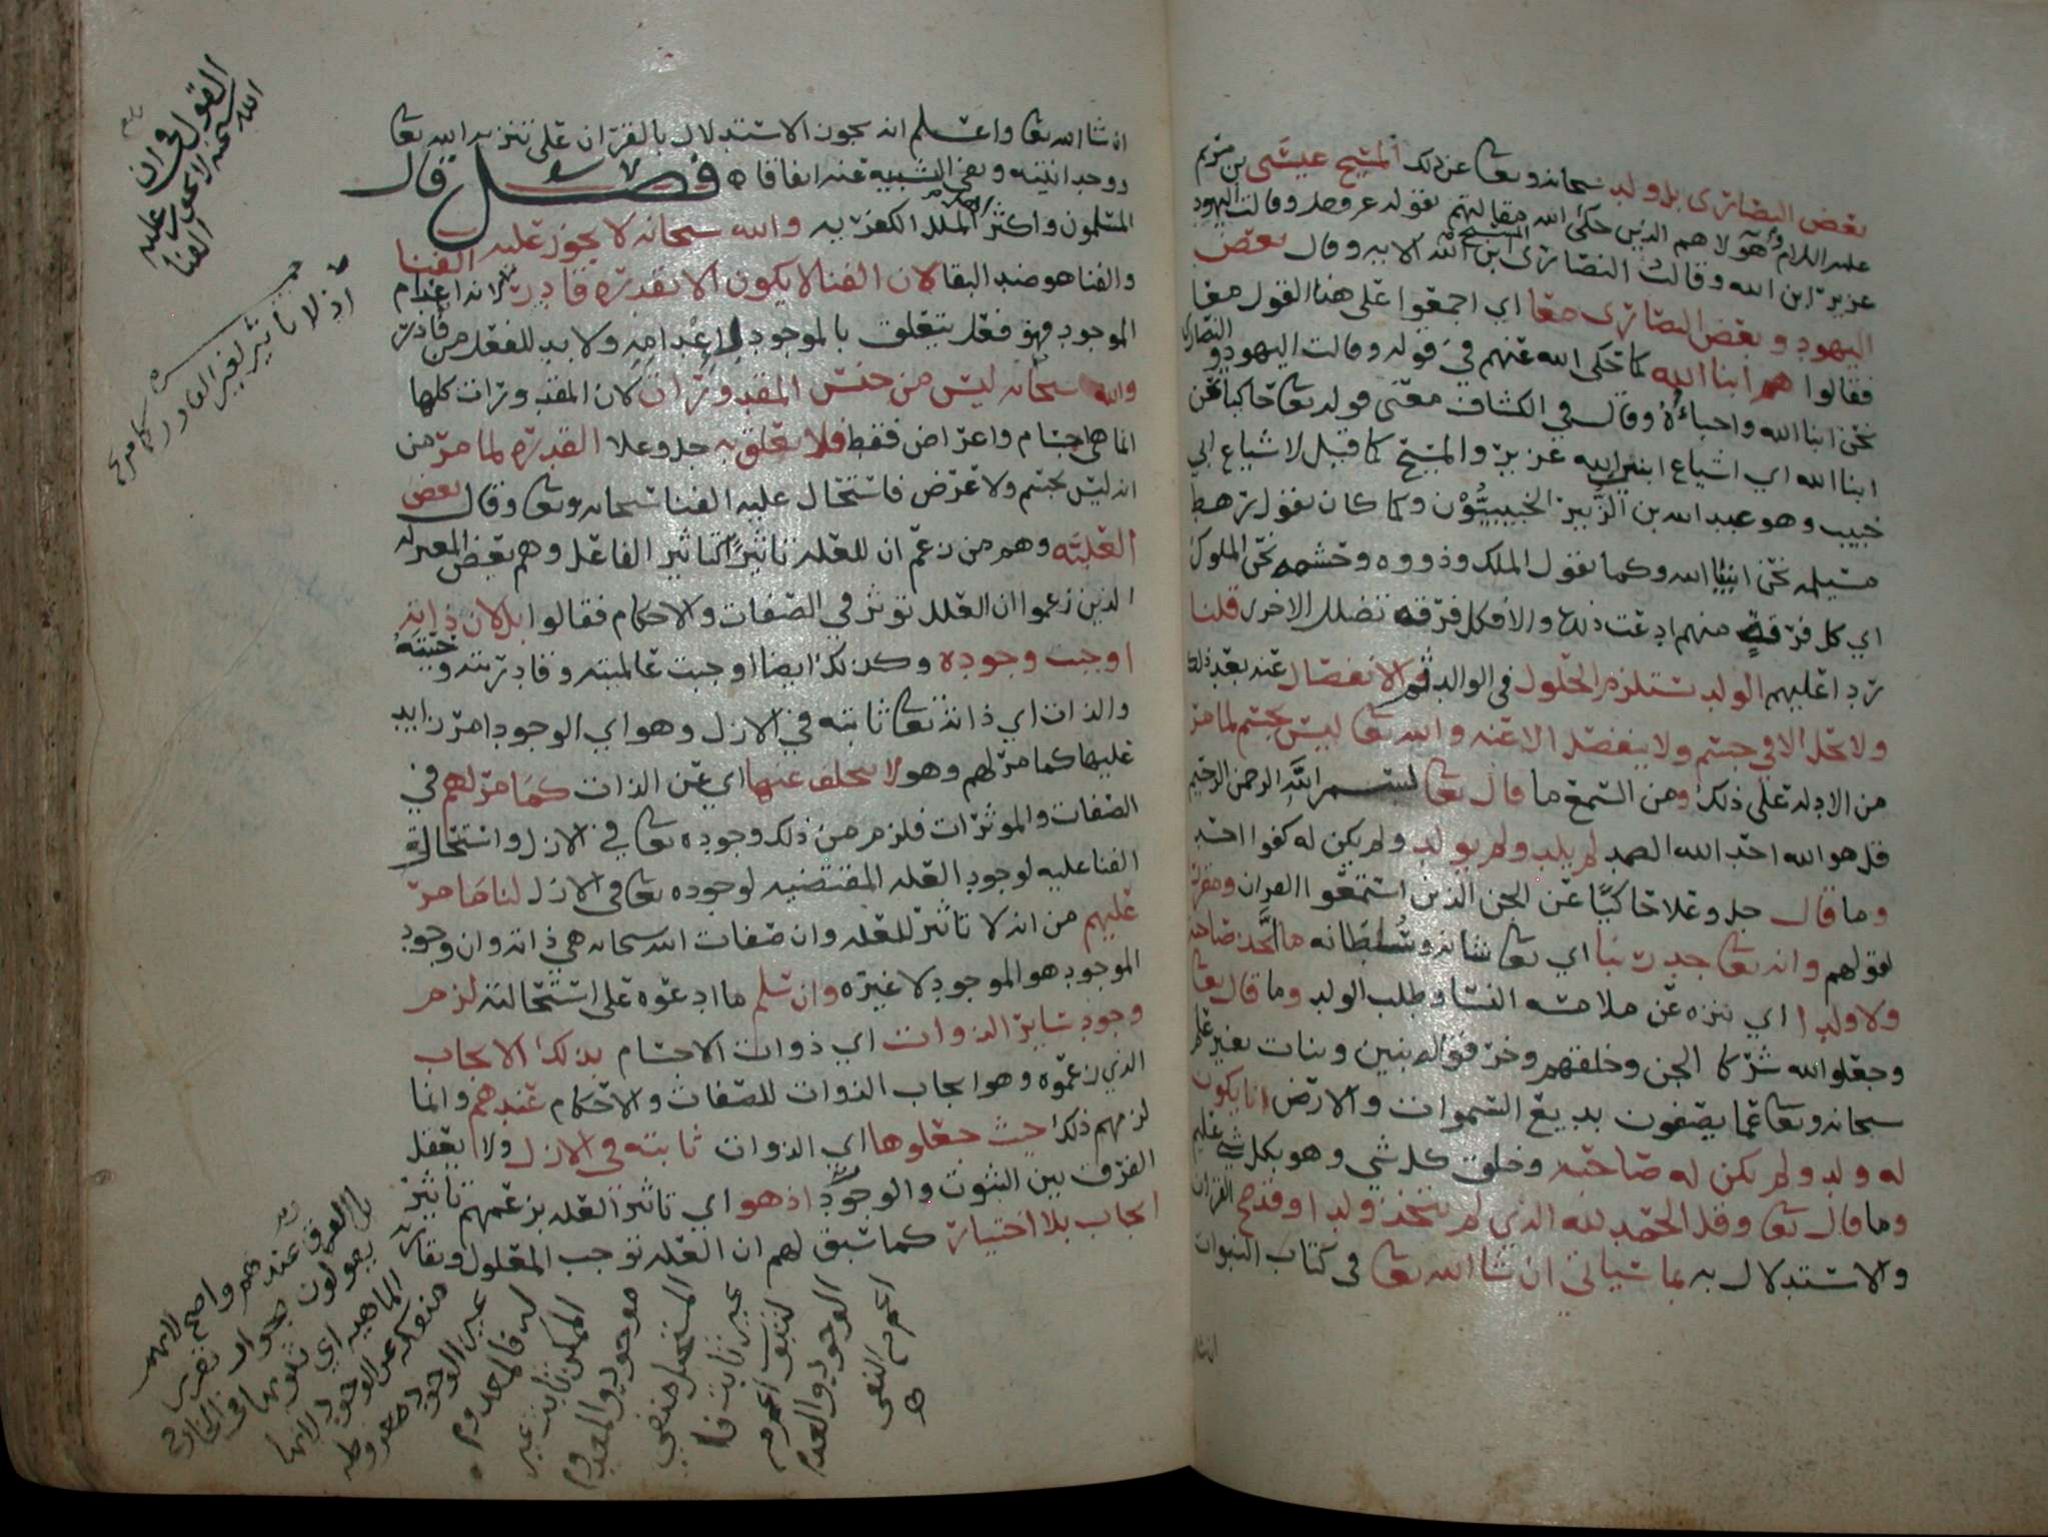 بعض النصارى بل ولد سبحانه وتعالى عن ذلك المسيح عيسى بن مريم
عليه السلام وهولاء هم الذين حكى الله مقالتهم بقوله عز وجل وقالت اليهود
عزير ابن الله وقالت النصارى المسيح ابن الله الايه وقال بعض
اليهود وبعض النصارى معا اي اجمعوا على هذا القول معا
فقالوا هم ابنا الله كما حكى الله عنهم في قوله وقالت اليهود والنصارى
نحن ابنا الله واحباءه وقال في الكشاف معنى قوله تعالى حاكيا نحن
ابنا الله اي اشياع ابني الله عزير والمسيح كما قيل لاشياع ابي
خبيب وهو عبد الله بن الزبير الخبيبيون وكما كان يقول رهط
مسيلمه نحن انبيا الله وكما يقول الملك وذووه وحشمه نحن الملوك
اي كل فرقة منهم ادعت ذلك والا فكل فرقه تضلل الاخرى قلنا
ردا عليهم الولد يستلزم الحلول في الوالد ثم الانفصال عنه بعد ذلك
ولا يحل الا في جسم ولا ينفصل الا عنه والله تعالى ليس بجسم لما مر
من الادله على ذلك ومن السمع ما قال تعالى بسم الله الرحمن الرحيم
قل هو الله احد الله الصمد لم يلد ولم يولد ولم يكن له كفوا احد
وما قال جل وعلا حاكيا عن الجن الذين استمعوا القران ومقررا
لقولهم وانه تعالى جد ربنا اي تعالى شانه وسلطانه ما اتخذ صاحبة
ولا ولدا اي تنزه عن ملامسه النسا وطلب الولد وما قال تعالى
وجعلوا لله شركا الجن وخلقهم وخرقوا له بنين وبنات بغير علم
سبحانه وتعالى عما يصفون بديع السموات والارض انا يكون
له ولد ولم يكن له صاحبه وخلق كل شي وهو بكل شي عليم
وما قال تعالى وقل الحمد لله الذي لم يتخذ ولدا وقد صح القران
والاستدلال به بما سياتي ان شا الله تعالى في كتاب النبوات
ان شا الله تعالى واعلم انه يجوز الاستدلال بالقران على تنزيه الله تعالى
ووحدانيته ونفي التشبيه عنه اتفاقا فصل قال
المسلمون واكثر اهل الملل الكفريه والله سبحانه لا يجوز عليه الفنا
والفنا هو ضد البقا لان الفنا لا يكون الا بقدرة قادر لانه اعدام
الموجود فهو فعل يتعلق بالموجود لاعدامه ولا بد للفعل من قادر
والله سبحانه ليس من جنس المقدورات لان المقدورات كلها
انما هي اجسام واعراض فقط فلا تعلق به جل وعلا القدرة لما مر من
انه ليس بجسم ولا عرض فاستحال عليه الفنا سبحانه وتعالى وقال بعض
العليه وهم من زعم ان للعله تاثيرا كتاثير الفاعل وهم بعض المعتزله
الذين زعموا ان العلل توثر في الصفات والاحكام فقالوا بل لان ذاته
اوجبت وجوده وكذلك ايضا اوجبت عالميته وقادريته وحييته
والذات اي ذاته تعالى ثابته في الازل وهو اي الوجود امر زايد
عليها كما مر لهم وهو لا يتخلف عنها اي عن الذات كما مر لهم في
الصفات والموثرات فلزم من ذلك وجوده تعالى في الازل واستحالة
الفنا عليه لوجود العله المقتضيه لوجوده تعالى في الازل لنا ما مر
عليهم من انه لا تاثير للعله وان صفات الله سبحانه هي ذاته وان وجود
الموجود هو الموجود لا غيره وان سلم ما ادعوه على استحالته لزم
وجود ساير الذوات اي ذوات الاجسام بذلك الايجاب
الذي زعموه وهو ايجاب الذوات للصفات والاحكام عندهم وانما
لزمهم ذلك حيث جعلوها اي الذوات ثابته في الازل ولا يعقل
الفرق بين الثبوت والوجود اذ هو اي تاثير العله بزعمهم تاثير
ايجاب بلا اختيار كما سبق لهم ان العله توجب المعلول
القول في ان الله
سبحنه لا يجوز عليه
الفنا
اذ لا تاثير لغير القادر كما مر
الفرق عندهم
الماهيه اي
منفكه عن الوجود لانها
غير الوجود
فالمعدوم
الممكن ثابت غير
موجود والمعدوم
المستحيل منفي
غير ثابت
الثبوت اعم من
الوجود والعدم
اعم من النفي